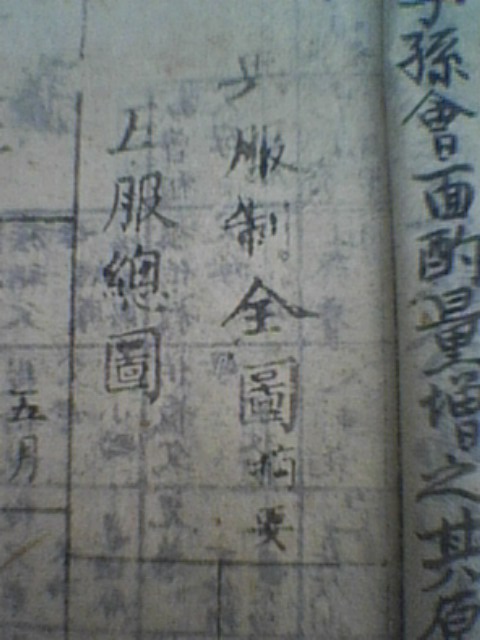 孫會面酌量增之其原
服制全圖摘要
服總圖
五月